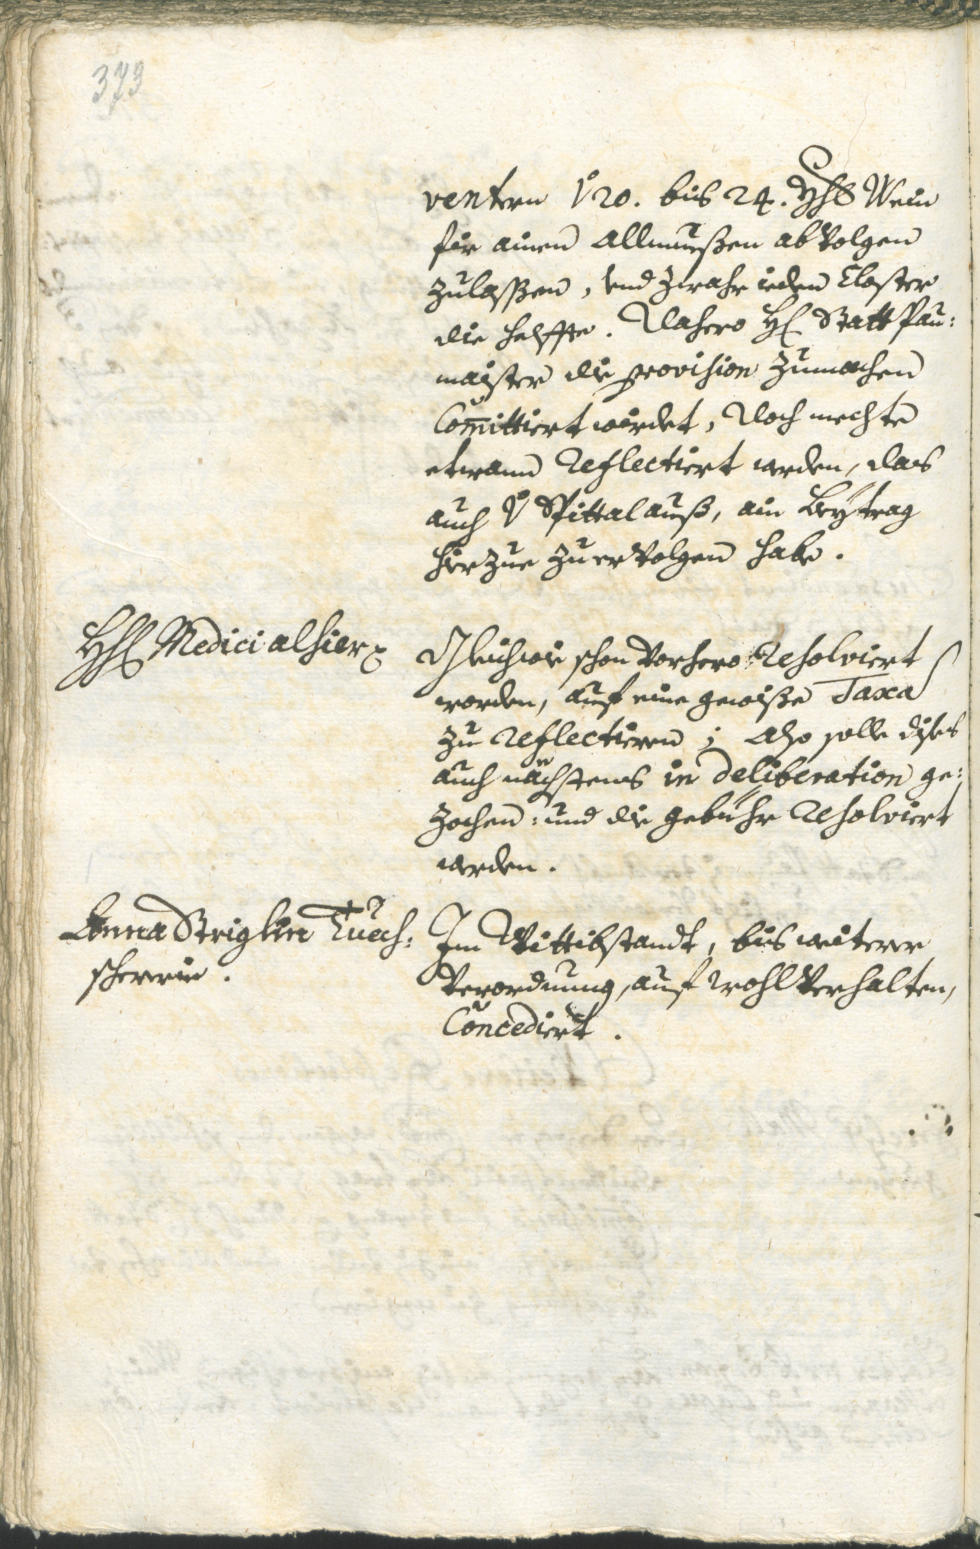 373
ventern V 20. bis 24. Yhs Wein
für ainen Allmueßen abVolgen
Zulassen, und zwahr ieden Closter
die helffte. Dahero H: StattPau:
maister die provision Zumachen
Com̄ittiert würdet, Doch mechte
etwann Reflectiert werden, das
auch V Spittal auß, ain Beÿtrag
hierzue Zu erVolgen habe.
HH: Medici alhier
Gleichwie schon Vorhero Resolviert
worden, auf eine gewiße Taxa
zu Reflectieren; Also solle dises
auch nächstens in deliberation ge:
Zochen: und die gebühr Resolviert
werden.
Anna Striglin Tuech:
schererin.
Im Wittibstandt, bis weiterer
Verordnung, auf wohlVerhalten,
Concediert.